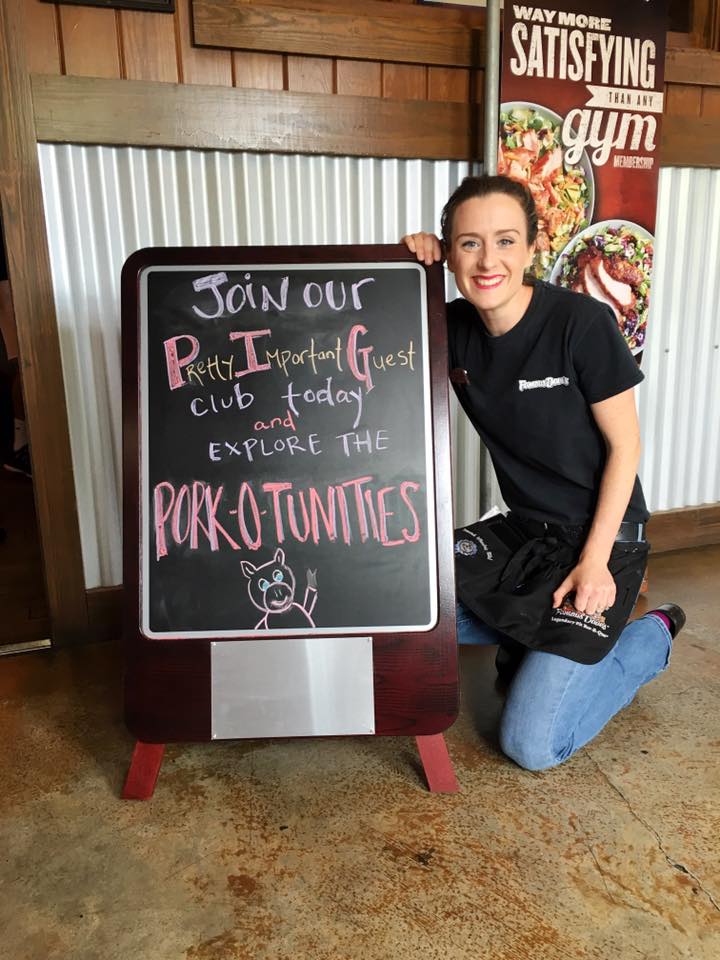 WAY MORE
SATISFYING
THAN ANY
gym
MEMBERSHIP
JOiN OUr
Pretty Important Guest
club today
and
EXPLORE THE
PORK-O-TUNITIES
Famous Dave's
Famous Dave's
Legendary Pit Bar-B-Que